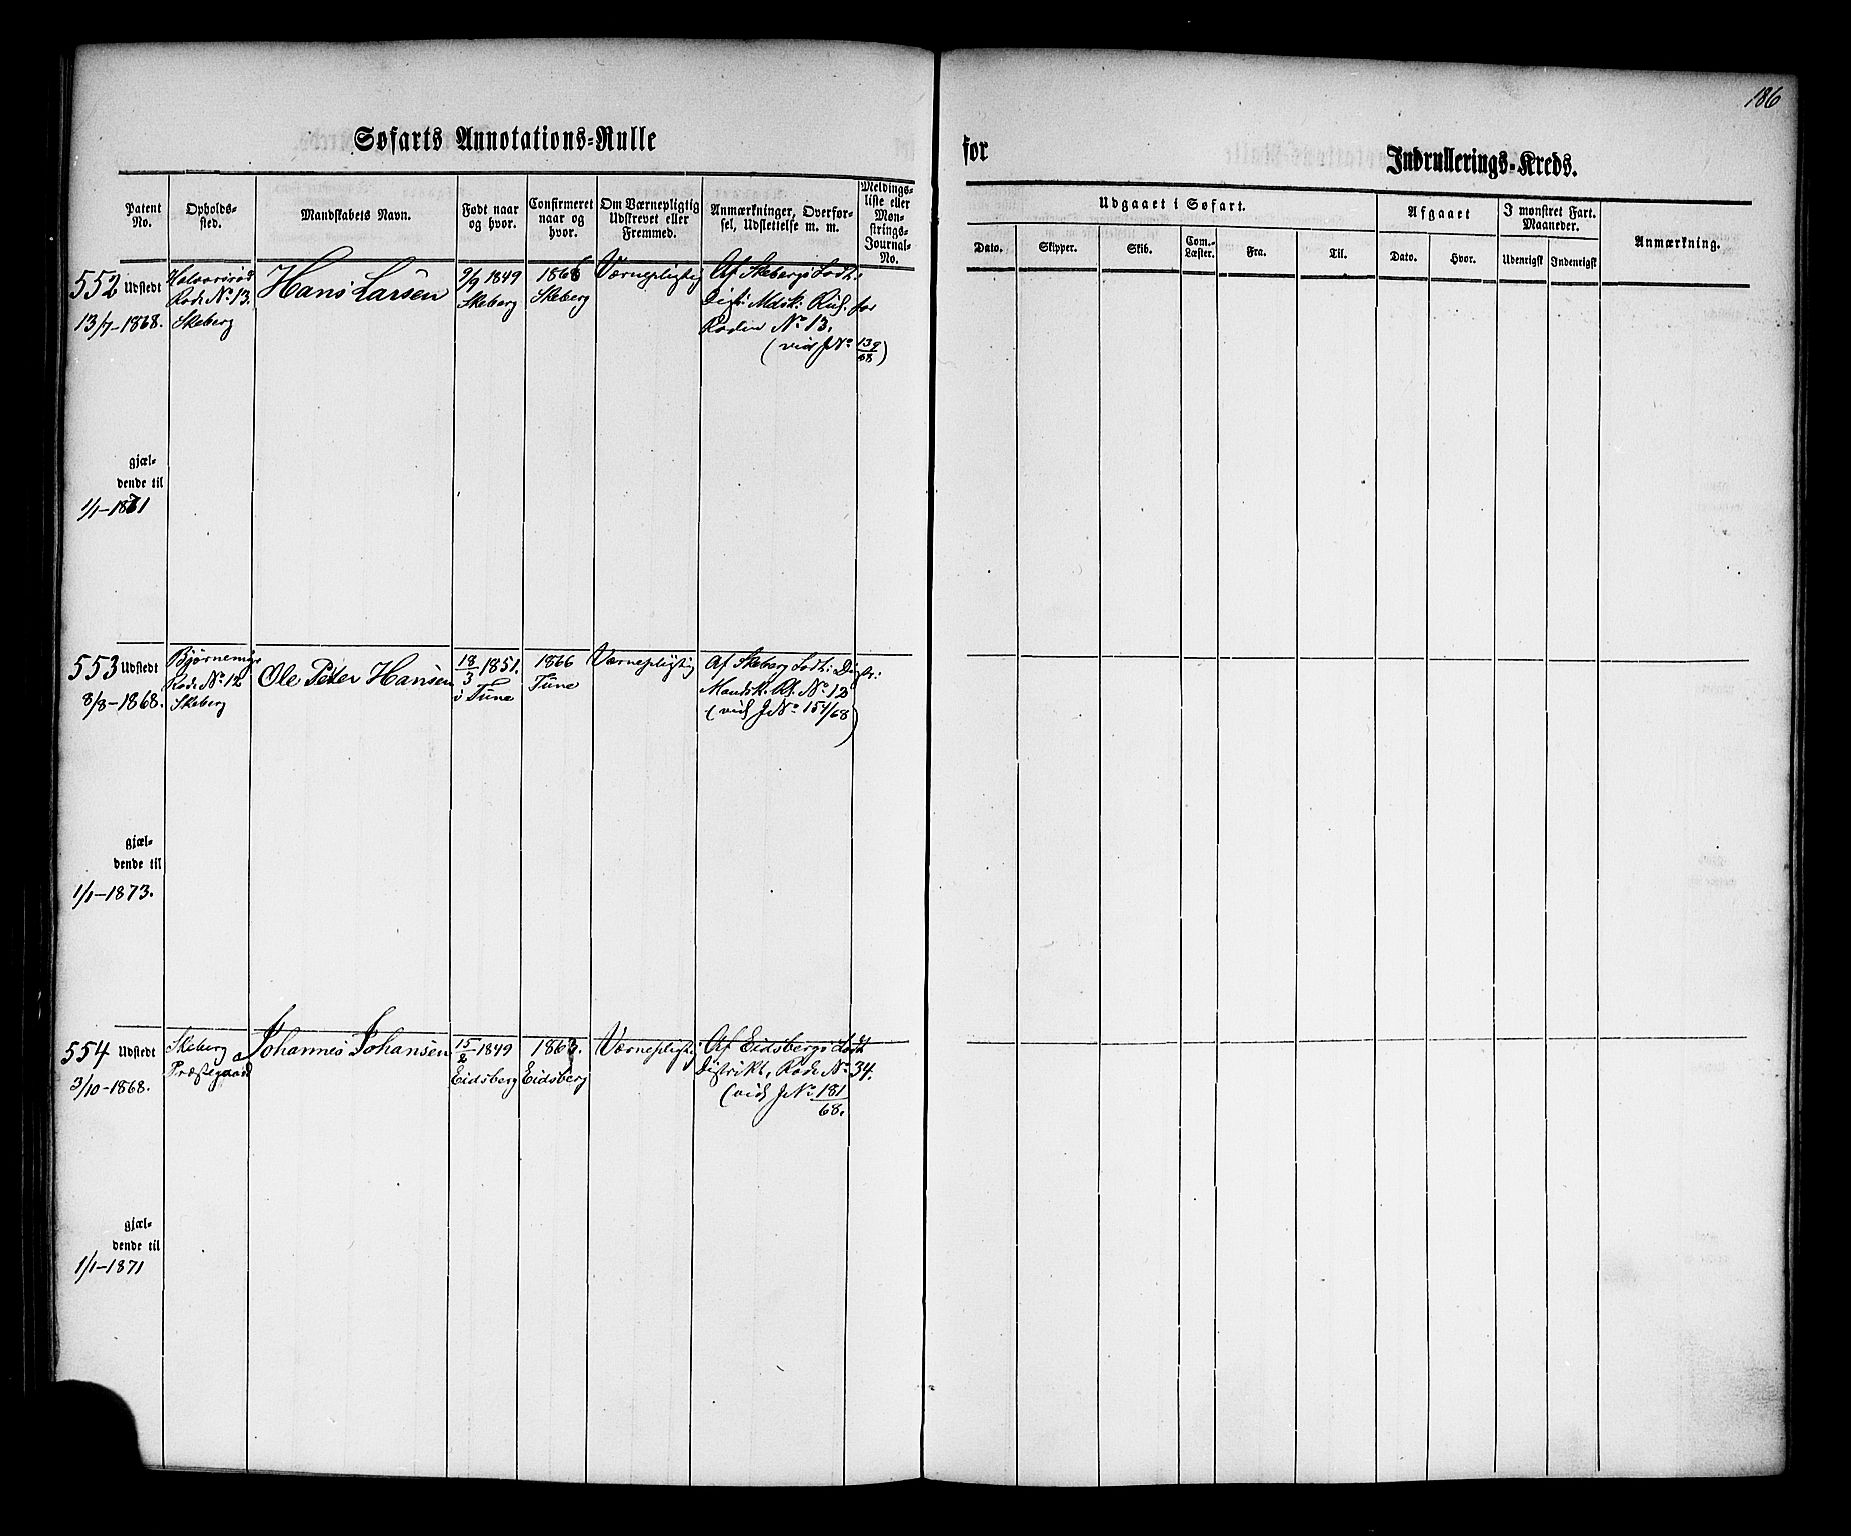 186
Søfarts Annotations-Rulle
for
Indrullerings-Kreds.
Patent No.
Opholdssted.
Mandskabets Navn.
Født naar og hvor.
Confirmeret naar og hvor.
Om Værnepligtig Udskrevet eller Fremmed.
Anmærkninger, Overførsel, Udslettelse m. m.
Meldings-liste eller Mønstrings-Journal-No.
Udgaaet i Søfart.
Afgaaet
I mønstret Fart. Maaneder.
Anmærkning.
Dato.
Skipper.
Skib.
Com.-Læster.
Fra.
Til.
Dato.
Hvor.
Udenrigsk
Indenrigsk
552 Udstedt
13/7-1868.
Rode No 13.
Skeberg
Hans Larsen
9/9 1849
Skeberg
Skeberg
Værnepligtig
Af Skebergs Lodt:
Rul. for
Roden No 13.
(vid J No 139/68)
gjæl-
dende til
1/1-1871
553 Udstedt
8/8-1868.
Rode No 12
Skeberg
Ole Peter Hansen
18/3 1851.
i Tune
1866
Tune
Værnepligtig
Af Skeberg Lodt: Distr:
Mandsk. Rl. No 12
(vid J No 154/68)
gjæl-
dende til
1/1-1873.
554 Udstedt
3/10-1868.
Skeberg
Præstegaard
Johannes Johansen
15/2 1849
Eidsberg
Eidsberg
Værnepligtig
Af Eidsbergs Lodt
Distrikt, Rode No 34.
(vid J No 181/68.
gjæl-
dende til
1/1-1871